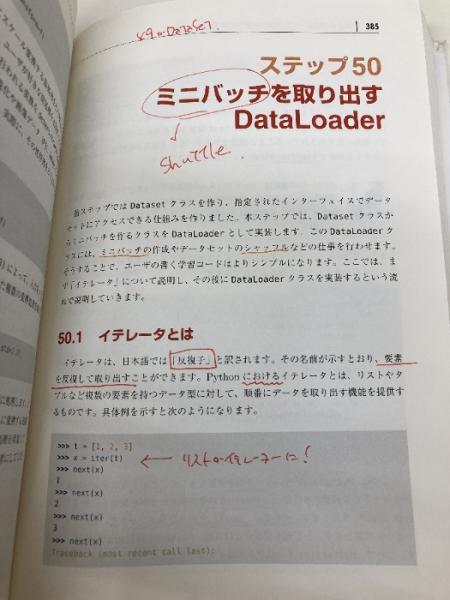 s49のDataset.
385
ステップ50
ミニバッチを取り出す
DataLoader
shuttle.
前ステップでは Dataset クラスを作り、指定されたインターフェイスでデータ
セットにアクセスできる仕組みを作りました。本ステップでは、Dataset クラスか
らミニバッチを作るクラスを DataLoader として実装します。この DataLoader ク
ラスには、ミニバッチの作成やデータセットのシャッフルなどの仕事を行わせます。
そうすることで、ユーザの書く学習コードはよりシンプルになります。ここでは、ま
ず「イテレータ」について説明し、その後に DataLoader クラスを実装するという流
れで説明していきます。
50.1 イテレータとは
イテレータは、日本語では「反復子」と訳されます。その名前が示すとおり、要素
を反復して取り出すことができます。Python におけるイテレータとは、リストやタ
プルなど複数の要素を持つデータ型に対して、順番にデータを取り出す機能を提供す
るものです。具体例を示すと次のようになります。
>>> t = [1, 2, 3]
>>> x = iter(t)
>>> next(x)
1
>>> next(x)
2
>>> next(x)
3
>>> next(x)
Traceback (most recent call last):